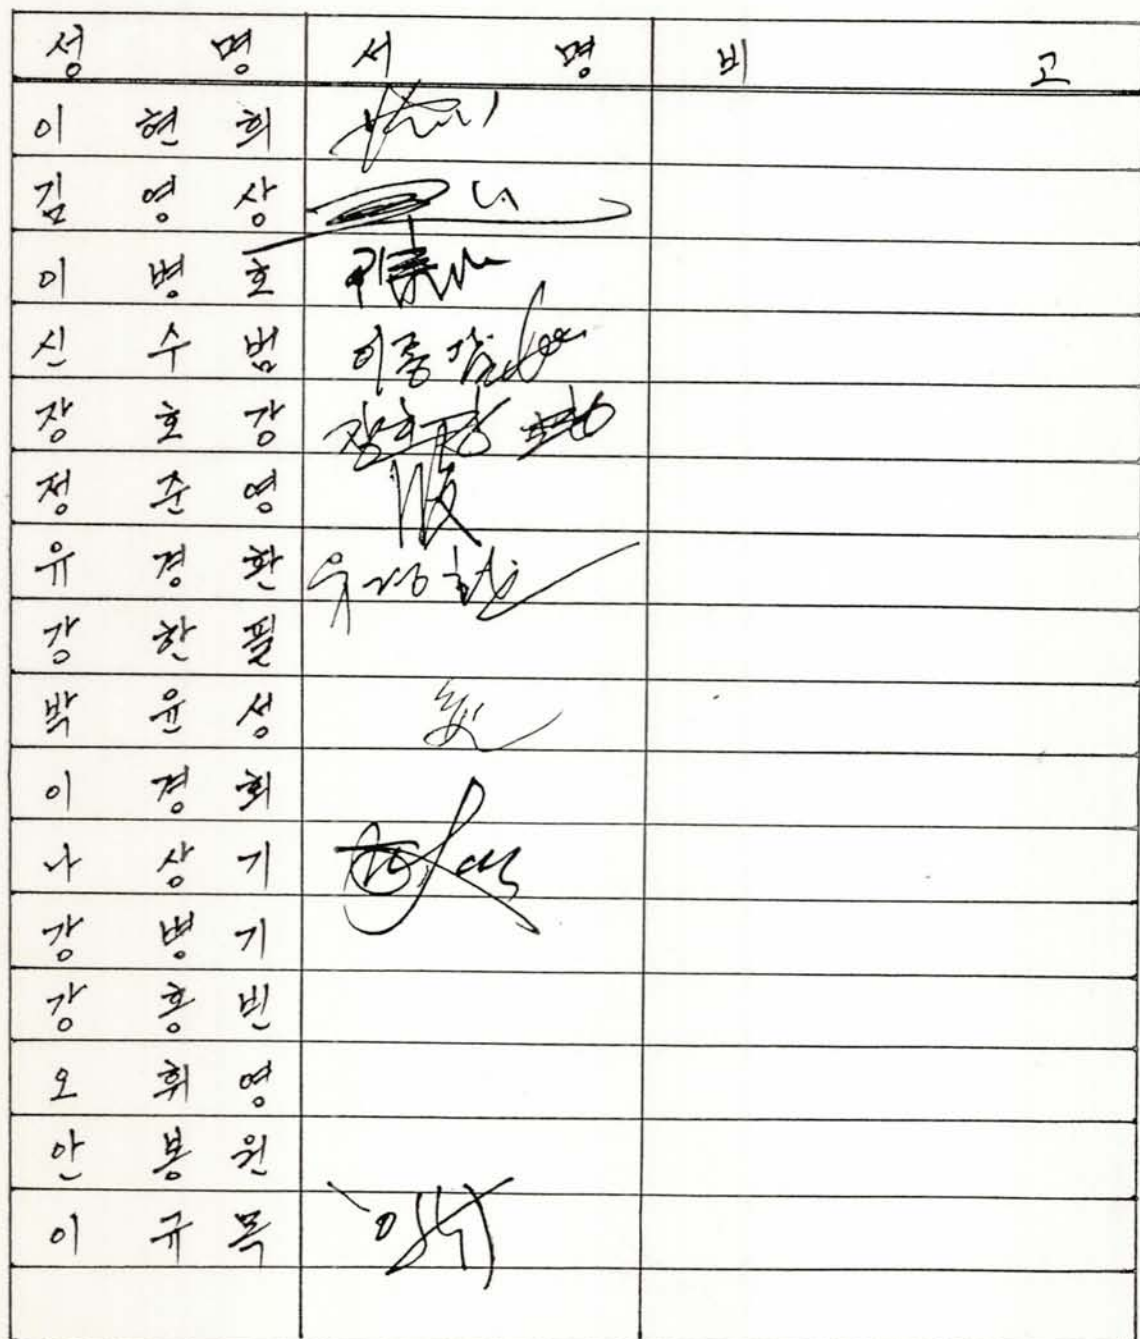 성 명 서 명 비 고
이 현 희
김 영 상
이 병 호
신 수 범
장 호 강 장호강
정 준 영
유 경 환 유경환
강 한 필
박 윤 성
이 경 회
나 상 기
강 병 기
강 홍 빈
오 휘 영
안 봉 원
이 규 목